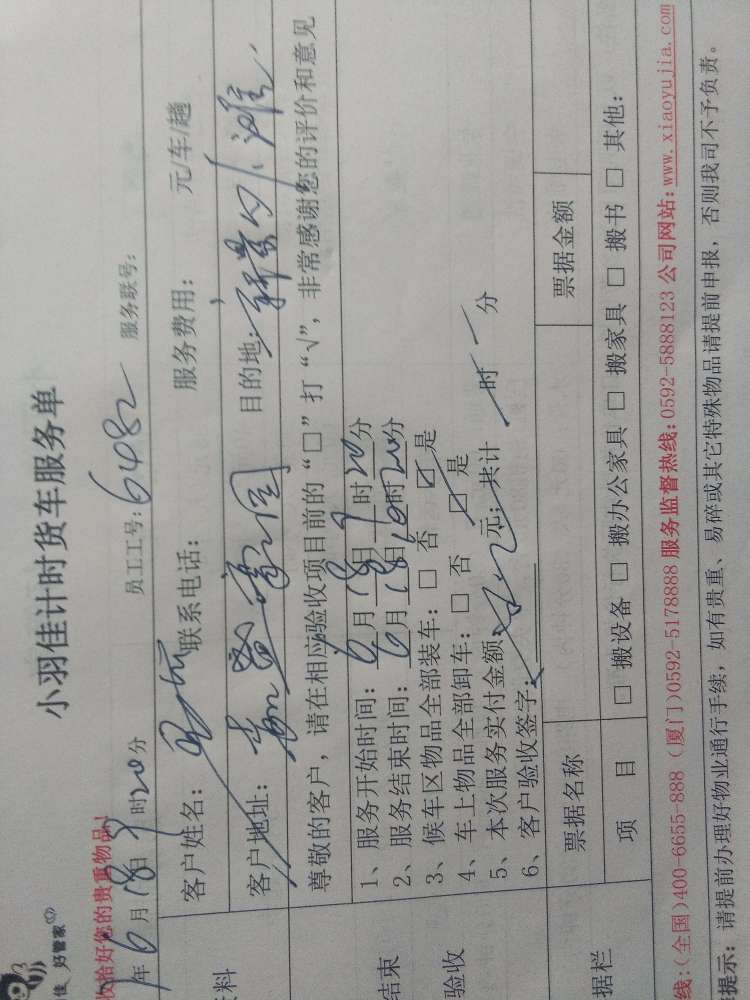 佳 好管家
小羽佳计时货车服务单
收拾好您的贵重物品！
年6月18日9时20分 员工工号：6482 服务联号：
客户姓名： 联系电话： 服务费用： 元/车/趟
客户地址： 目的地：
尊敬的客户，请在相应验收项目前的“□”打“√”，非常感谢您的评价和意见
1、服务开始时间：6月18日9时20分
结束 2、服务结束时间：6月18日10时20分
3、候车区物品全部装车：□ 否 ☑ 是
验收 4、车上物品全部卸车：□ 否 ☑ 是
5、本次服务实付金额： 元；共计 时 分
6、客户验收签字：
据栏 票据名称 票据金额
项 目 □ 搬设备 □ 搬办公家具 □ 搬家具 □ 搬书 □ 其他：
线：(全国)400-6655-888 (厦门)0592-5178888 服务监督热线：0592-5888123 公司网站：www.xiaoyujia.com
提示：请提前办理好物业通行手续，如有贵重、易碎或其它特殊物品请提前申报，否则我司不予负责。